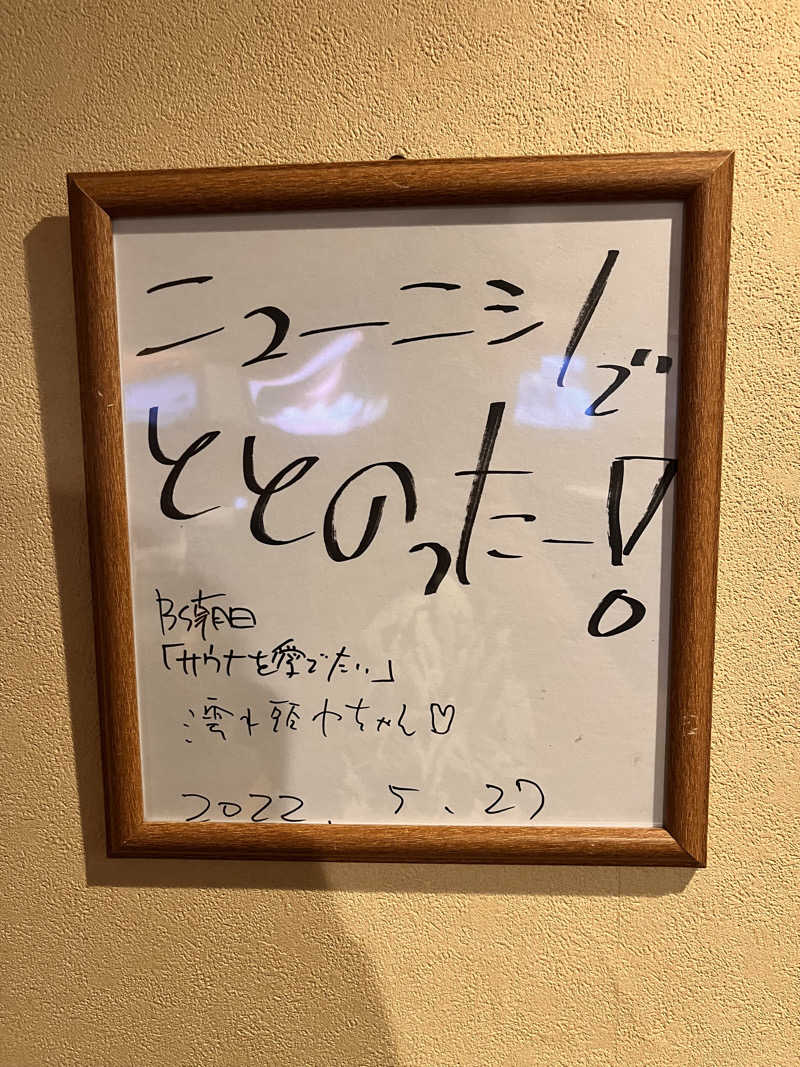 ニューニシノで
ととのったー!
BS朝日
「サウナを愛でたい」
濡れ頭巾ちゃん♡
2022.5.27